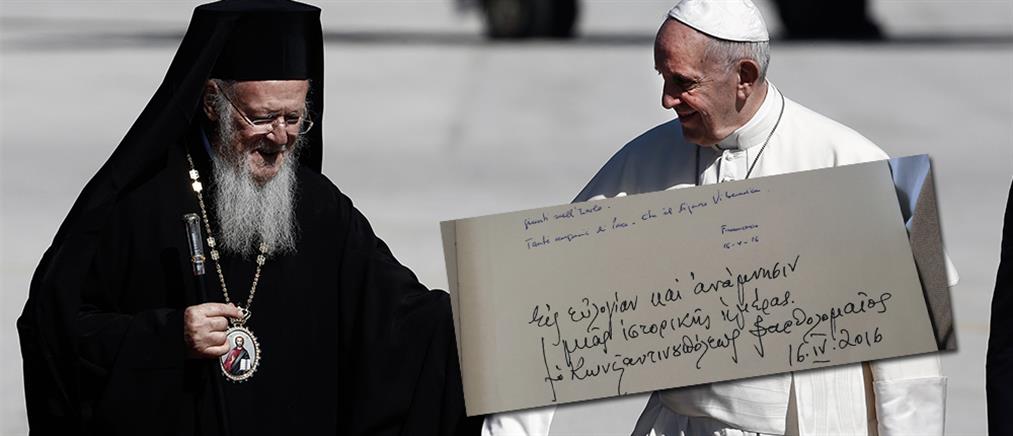 questi nell'
Tante . Che il Signore Vi benedica.
Francesco
16-4-16
Εἰς εὐλογίαν καὶ ἀνάμνησιν
μιᾶς ἱστορικῆς ἡμέρας.
ὁ Κωνσταντινουπόλεως Βαρθολομαῖος
16.IV.2016